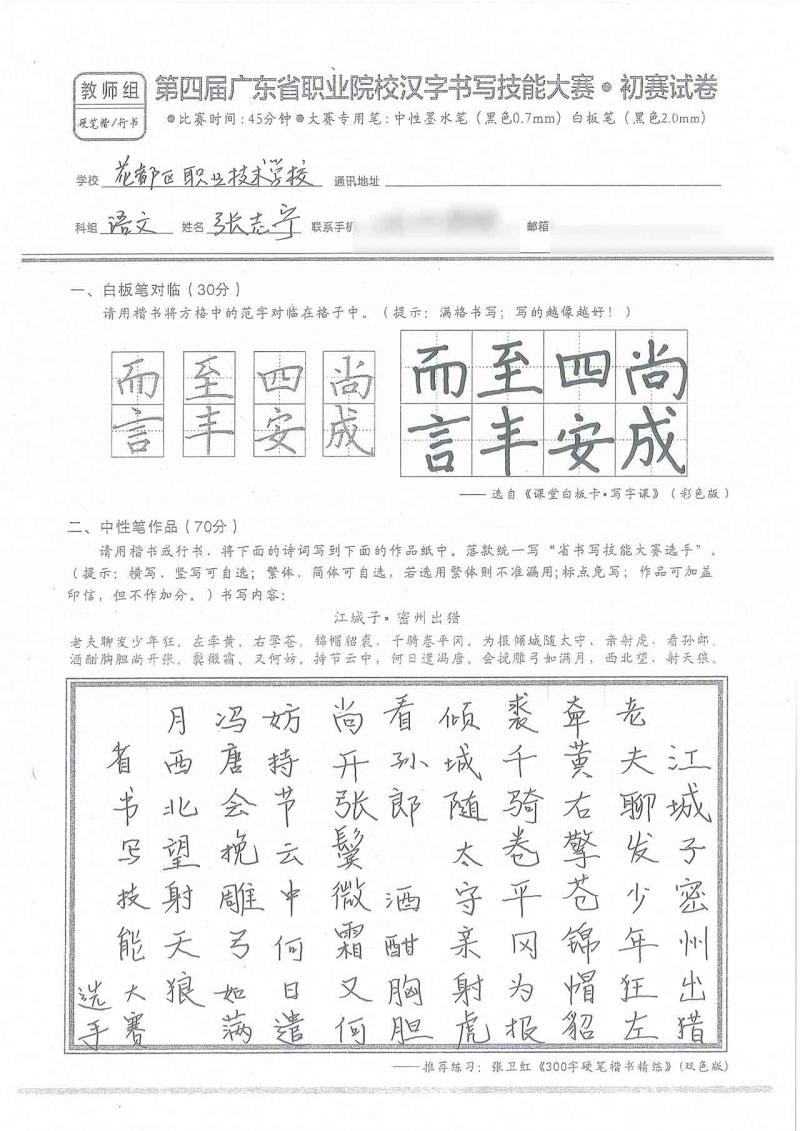 教师组
硬笔楷/行书
第四届广东省职业院校汉字书写技能大赛·初赛试卷
●比赛时间:45分钟●大赛专用笔:中性墨水笔(黑色0.7mm)白板笔(黑色2.0mm)
学校 花都区职业技术学校 通讯地址
科组 语文 姓名 张志宁 联系手机 邮箱
一、白板笔对临(30分)
请用楷书将方格中的范字对临在格子中。(提示:满格书写;写的越像越好!)
而 至 四 尚 而至四尚
言 丰 安 成 言丰安成
——选自《课堂白板卡·写字课》(彩色版)
二、中性笔作品(70分)
请用楷书或行书、将下面的诗词写到下面的作品纸中。落款统一写“省书写技能大赛选手”。
(提示:横写、竖写可自选;繁体、简体可自选,若选用繁体则不准漏用;标点免写;作品可加盖
印信,但不作加分。)书写内容:
江城子·密州出猎
老夫聊发少年狂,左牵黄,右擎苍,锦帽貂裘,千骑卷平冈,为报倾城随太守、亲射虎,看孙郎。
酒酣胸胆尚开张,鬓微霜、又何妨,持节云中,何日遣冯唐。会挽雕弓如满月,西北望,射天狼。
江城子密州出猎
老夫聊发少年狂左
牵黄右擎苍锦帽貂
裘千骑卷平冈为报
倾城随太守亲射虎
看孙郎 酒酣胸胆
尚开张鬓微霜又何
妨持节云中何日遣
冯唐会挽雕弓如满
月西北望射天狼
省书写技能大赛
选手
——推荐练习:张卫红《300字硬笔楷书精练》(双色版)